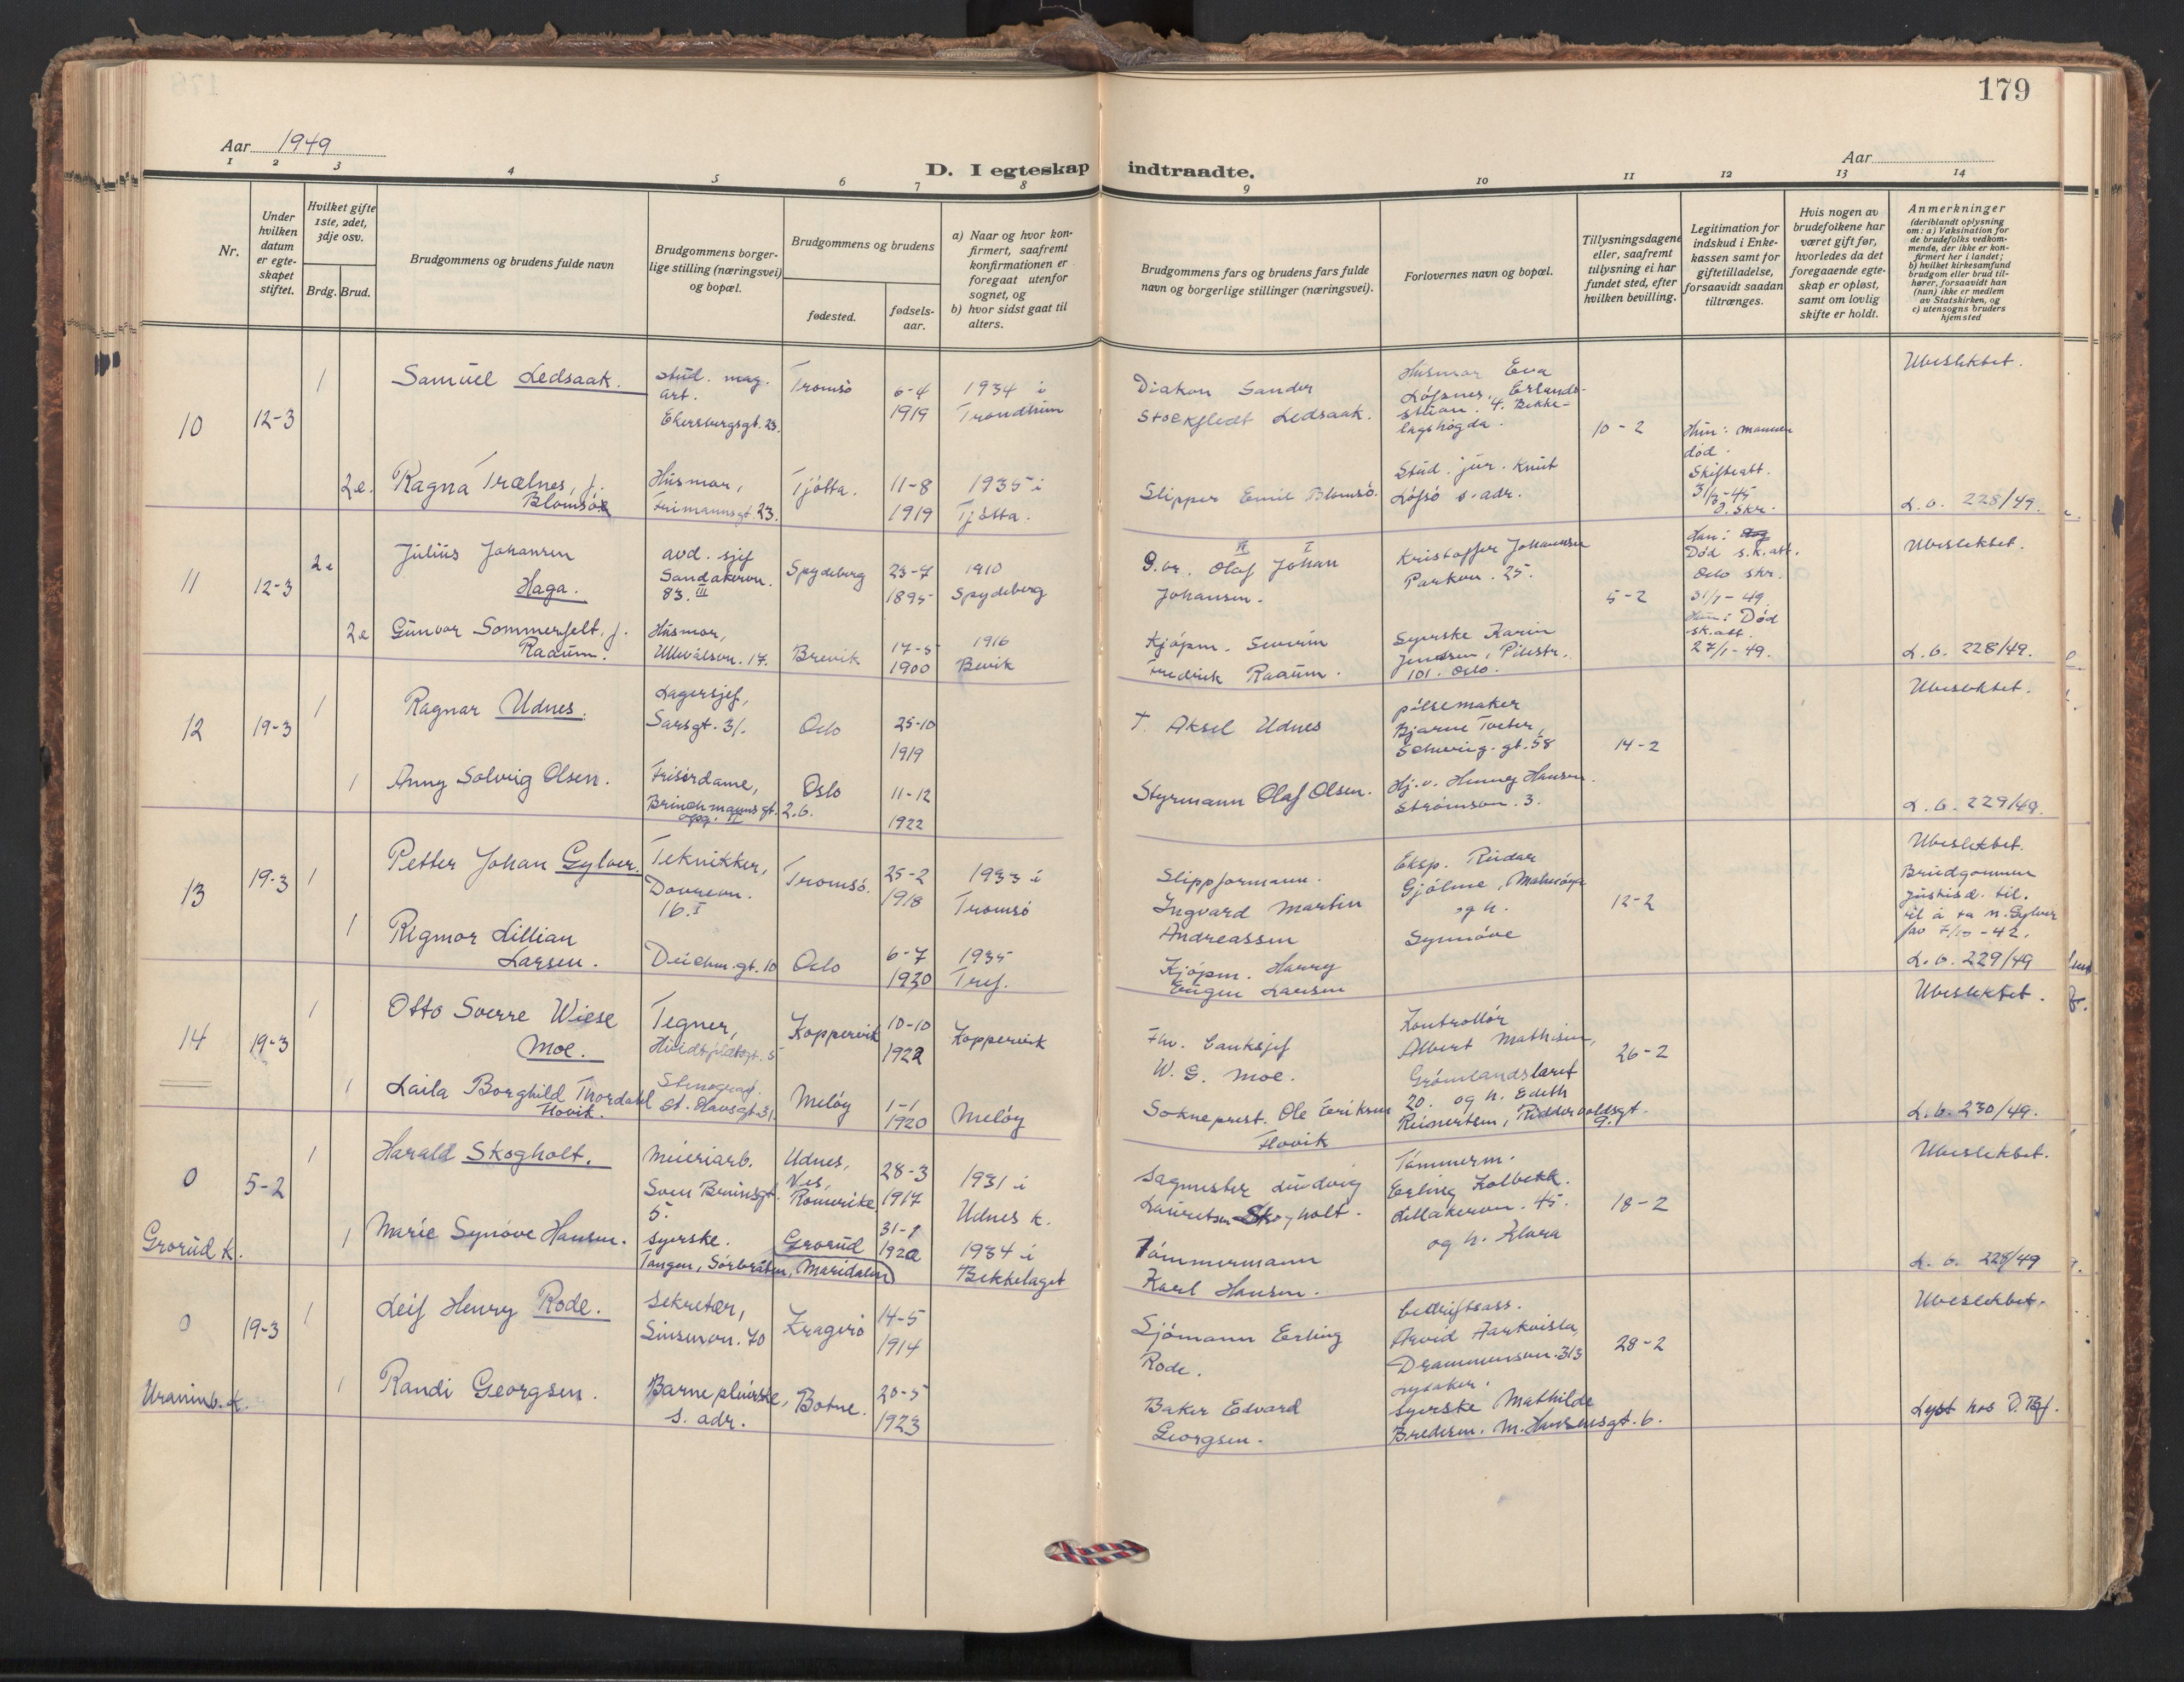 179
Aar 1949
D. I egteskap indtraadte.
Aar
1 2 3 4 5 6 7 8 9 10 11 12 13 14
Nr.
Under hvilken datum er egte-skapet stiftet.
Hvilket gifte 1ste, 2det, 3dje osv.
Brdg. Brud.
Brudgommens og brudens fulde navn
Brudgommens borger-lige stilling (næringsvei) og bopæl.
Brudgommens og brudens
fødested.
fødsels-aar.
a) Naar og hvor kon-firmert, saafremt konfirmationen er foregaat utenfor sognet, og
b) hvor sidst gaat til alters.
Brudgommens fars og brudens fars fulde navn og borgerlige stillinger (næringsvei).
Forlovernes navn og bopæl.
Tillysningsdagene eller, saafremt tillysning ei har fundet sted, efter hvilken bevilling.
Legitimation for indskud i Enke-kassen samt for giftetilladelse, forsaavidt saadan tiltrænges.
Hvis nogen av brudefolkene har været gift før, hvorledes da det foregaaende egte-skap er opløst, samt om lovlig skifte er holdt.
Anmerkninger
(deriblandt oplysning om: a) Vaksination for de brudefolks vedkom-mende, der ikke er kon-firmert her i landet; b) hvilket kirkesamfund brudgom eller brud til-hører, forsaavidt han (hun) ikke er medlem av Statskirken, og c) utensogns bruders hjemsted
10
12-3
1
Samuel Ledsaak.
stud. mag.
art.
Ekersbergsgt. 23.
Tromsö
6-4
1919
1934 i
Trondheim
Diakon Sander
Stockfledt Ledsaak.
Husmor Eva
Löfsnes, Erlands-
stuen. 4. Bekke-
lagshögda.
10-2
Hun: mannen
död.
Skifteatt.
31/3-45
O. skr.
Ubeslektet.
2e.
Ragna Trælnes, f.
Blomsö
Husmor,
Frimannsgt. 23.
Tjötta.
11-8
1919
1935 i
Tjötta.
Slipper Emil Blomsö.
Stud. jur. Knut
Löfsö s. adr.
L. b. 228/49.
11
12-3
2e
Julius Johansen
Haga.
avd. sjef
Sandakervn.
83. III
Spydeberg
23-7
1895
1910
Spydeberg
G.br. Olaf Johan
II I
Johansen.
Kristoffer Johannesen
Parkvn. 25.
5-2
Han:
Död s.k.att.
Oslo skr.
31/1-49
Hun: Död
sk.att.
27/1-49.
Ubeslektet.
2e
Gunvor Sommerfelt, f.
Raaum.
Husmor,
Ullevålsvn. 17.
Brevik
17-5
1900
1916
Bevik
Kjöpm. Severin
Fredrik Raaum.
Syerske Karin
Jensen, Pilestr.
101. Oslo.
L. b. 228/49.
12
19-3
1
Ragnar Udnes.
Lagersjef,
Sarsgt. 31.
Oslo
25-10
1919
T. Aksel Udnes
pölsemaker
Bjarne Tveter,
Schweig. gt. 58
14-2
Ubeslektet.
1
Anny Solveig Olsen.
Frisördame,
Brinchmannsgt. 2.b.
opg. II
Oslo
11-12
1922
Styrmann Olaf Olsen.
Hj. v. Henny Hansen.
Strömsvn. 3.
L. b. 229/49.
13
19-3
1
Petter Johan Gylver.
Teknikker,
Dovrevn.
16. I
Tromsö.
25-2
1918
1933 i
Tromsö
Slippformann.
Ingvard Martin
Andreassen
Eksp. Reidar
Gjölme, Malmöya
og h.
Synnöve
12-2
Ubeslektet.
Brudgommen
Justisd. til.
til å ta n. Gylver
fav 7/10-42.
1
Rigmor Lillian
Larsen.
Deichm. gt. 10
Oslo
6-7
1920
1935
Tref.
Kjöpm. Harry
Eugen Larsen
L. b. 229/49
14
19-3
1
Otto Sverre Wiese
Moe.
Tegner,
Hvidtfeldtsgt. 5
Koppervik
10-10
1922
Koppervik
Fhv. banksjef
W. G. Moe.
Kontrollör
Albert Mathisen,
Grönlandsleret
20. og h. Edith
Reinertsen, Riddervoldsgt.
9.
26-2
Ubeslektet.
1
Laila Borghild Thordahl
Hovik.
Stenograf.
St. Olavsgt. 31.
Melöy
1-1
1920
Melöy
Sokneprest. Ole Eriksen
Hovik
L. b. 230/49.
0
5-2
1
Harald Skogholt.
Meieriarb.
Sven Bruunsgt.
5.
Udnes,
Nes,
Romerike
28-3
1917
1931 i
Udnes k.
Sagmester Ludvig
Lauretsen Skogholt.
Tömmerm.
Erling Kolbekk.
Lillakervn. 45.
og h. Klara
18-2
Ubeslektet.
Grorud k.
1
Marie Synöve Hansen.
syerske.
Tangen, Sörbråten, Maridalen
Grorud
31-1
1920
1934 i
Bekkelaget
Tömmermann
Karl Hansen.
L. b. 228/49
0
19-3
1
Leif Henry Rode.
Sekretær,
Sinsenvn. 70
Kragerö
14-5
1914
Sjömann Erling
Rode.
bedriftsass.
Arvid Aarkvisla,
Drammensvn. 313
Lysaker.
28-2
Ubeslektet.
Uranienb. k.
1
Randi Georgsen.
Barnepleierske,
s. adr.
Botne.
20-5
1923
Baker Edvard
Georgsen.
syerske Mathilde
Bredesen. M. Hansensgt. 6.
Lyst hos D. Bf.